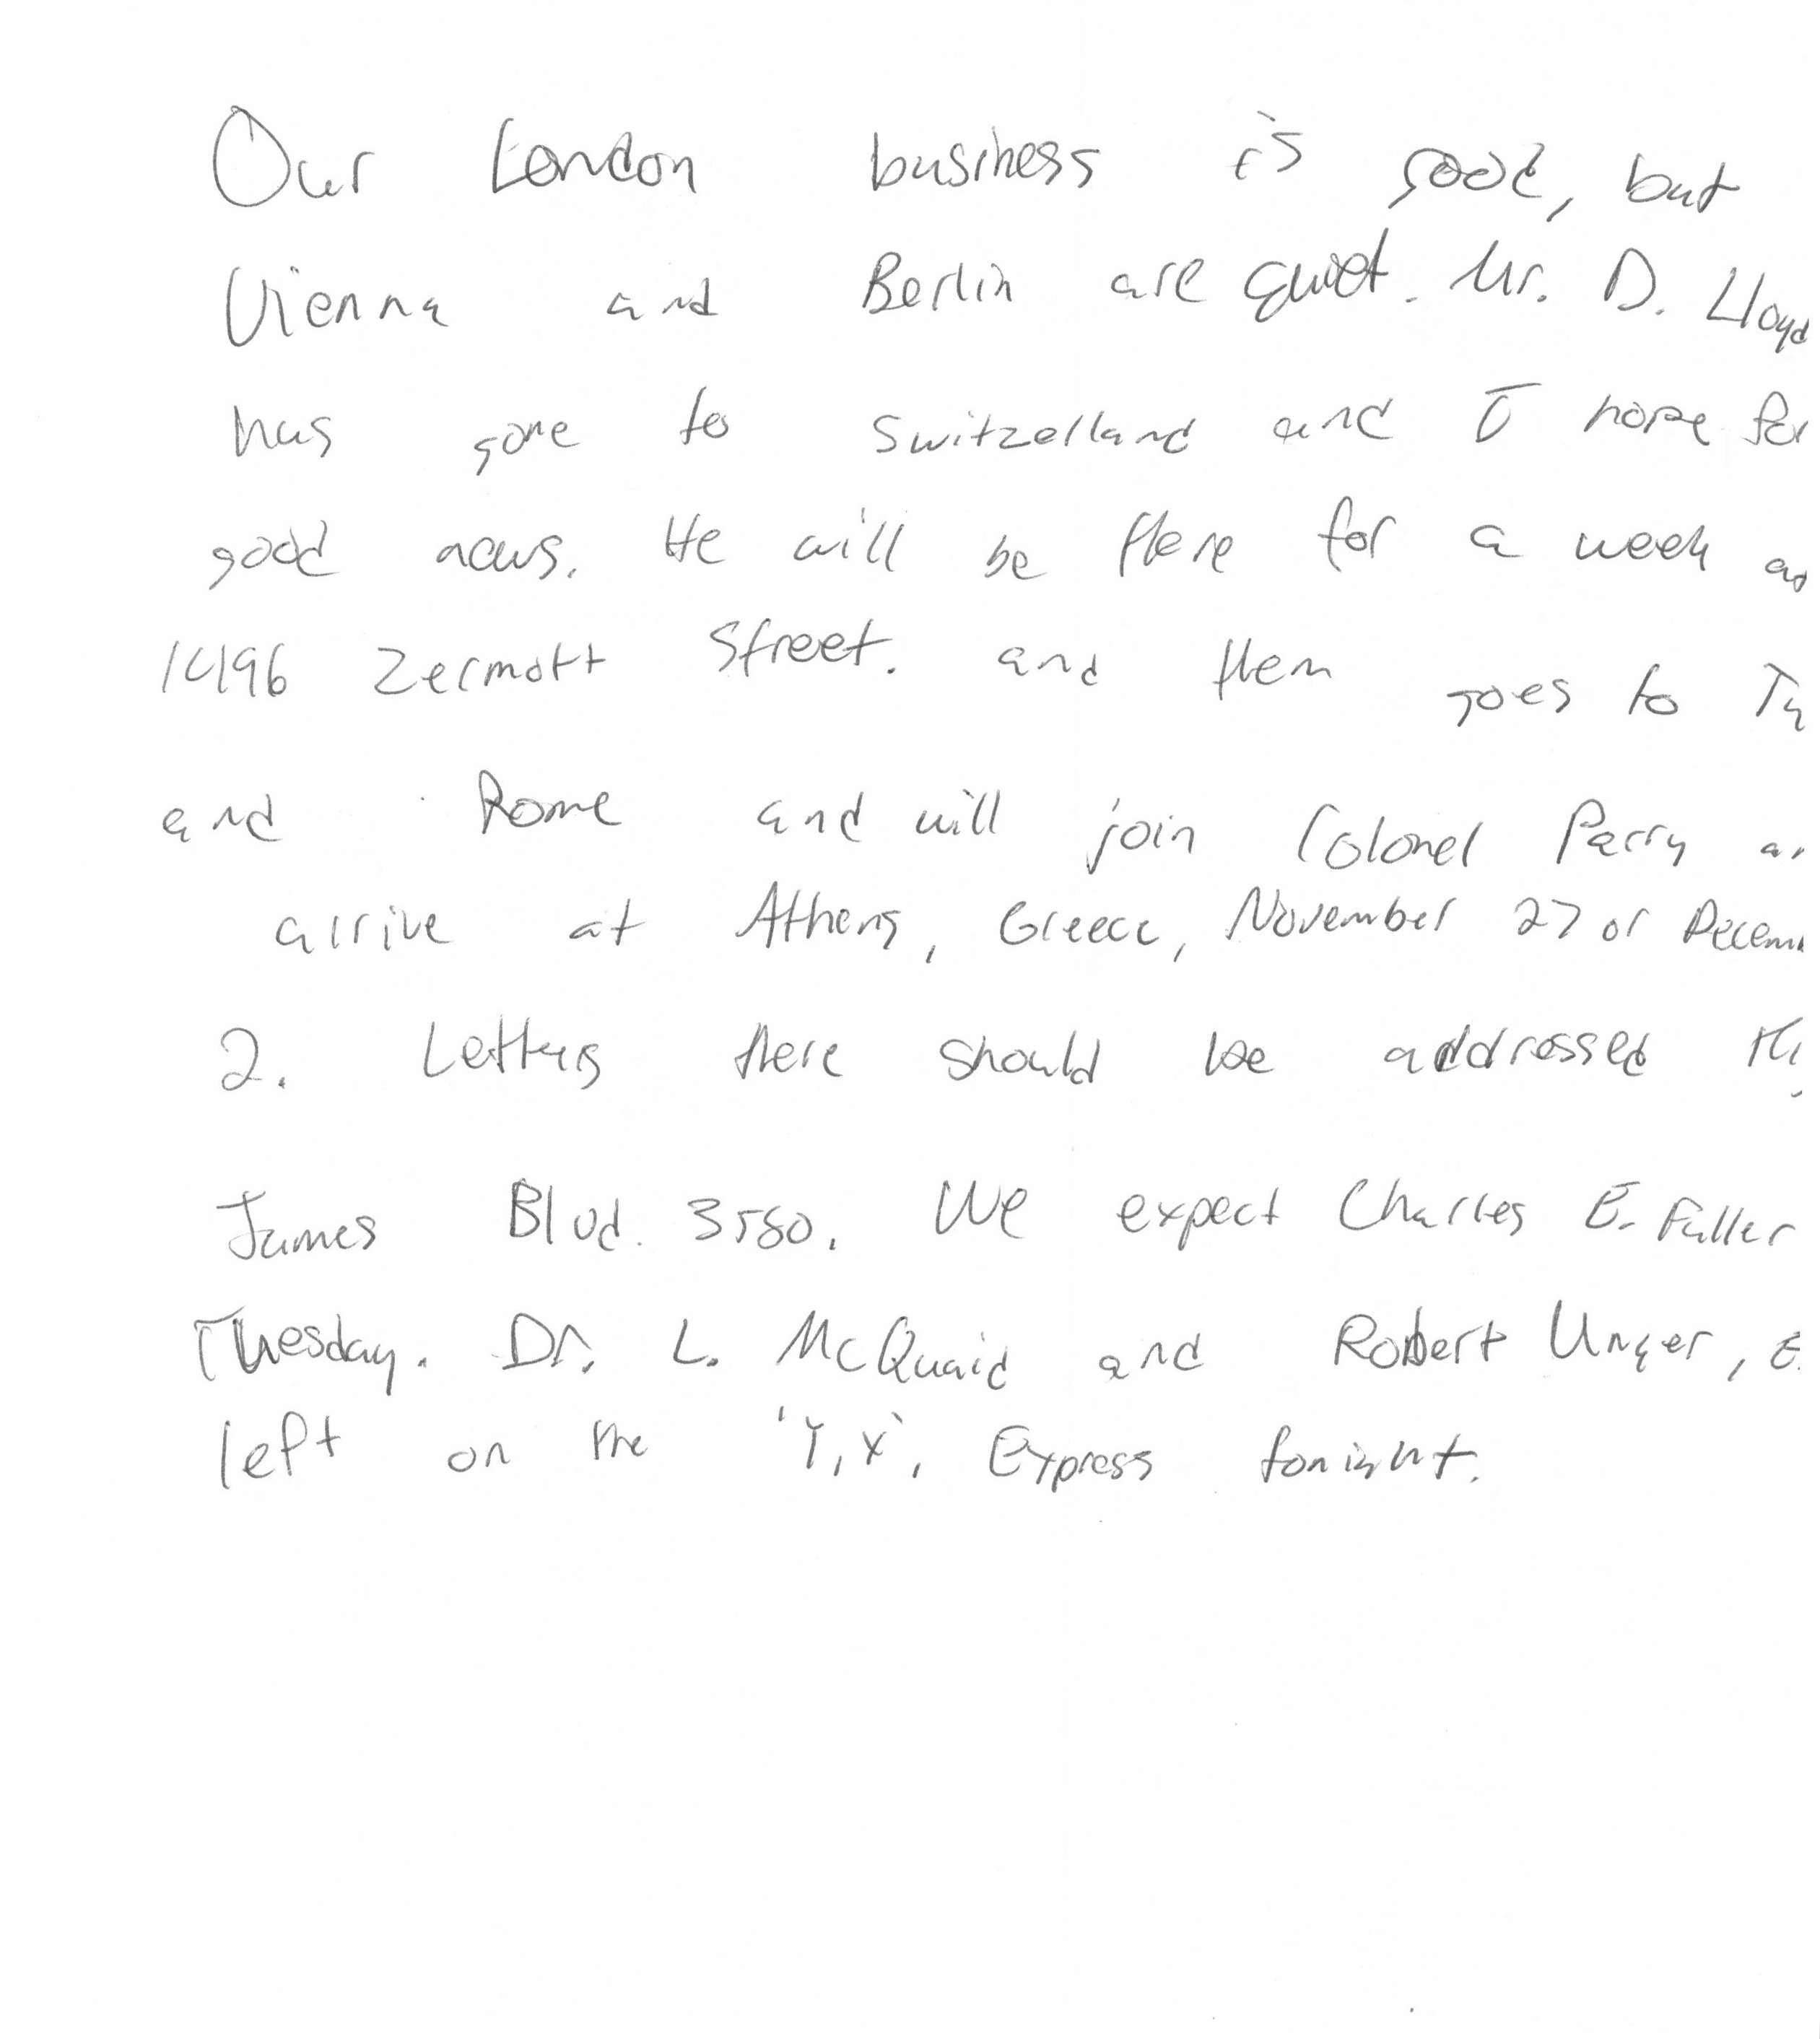 Our London business is good, but
Vienna and Berlin are quiet. Mr. D. Lloyd
has gone to Switzerland and I hope for
good news. He will be there for a week
1496 Zermott Street. and then goes to
and Rome and will join Colonel Parry
arrive at Athens, Greece, November 27 or Decem
2. Letters there should be addressed
James Blvd. 3580. We expect Charles E. Fuller
Tuesday. Dr. L. McQuaid and Robert Unger,
left on the 'Y,X', Express tonight.